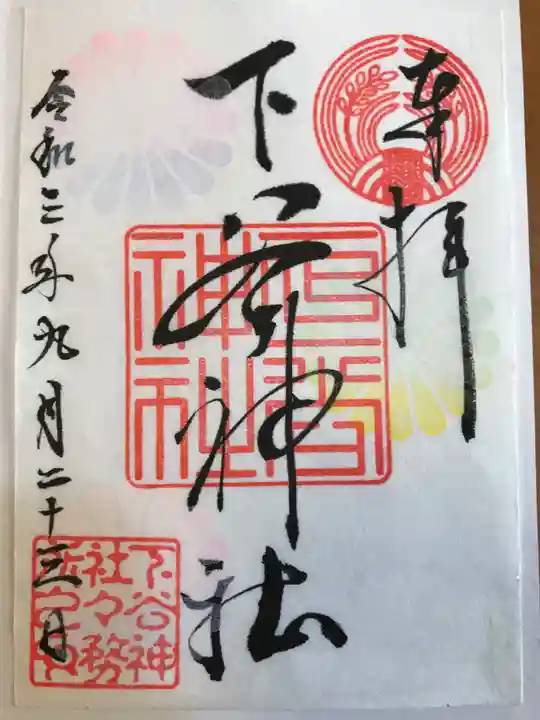 奉拝
下谷神社
下谷神社
令和三年九月二十三日
下谷神
社々務
所之印